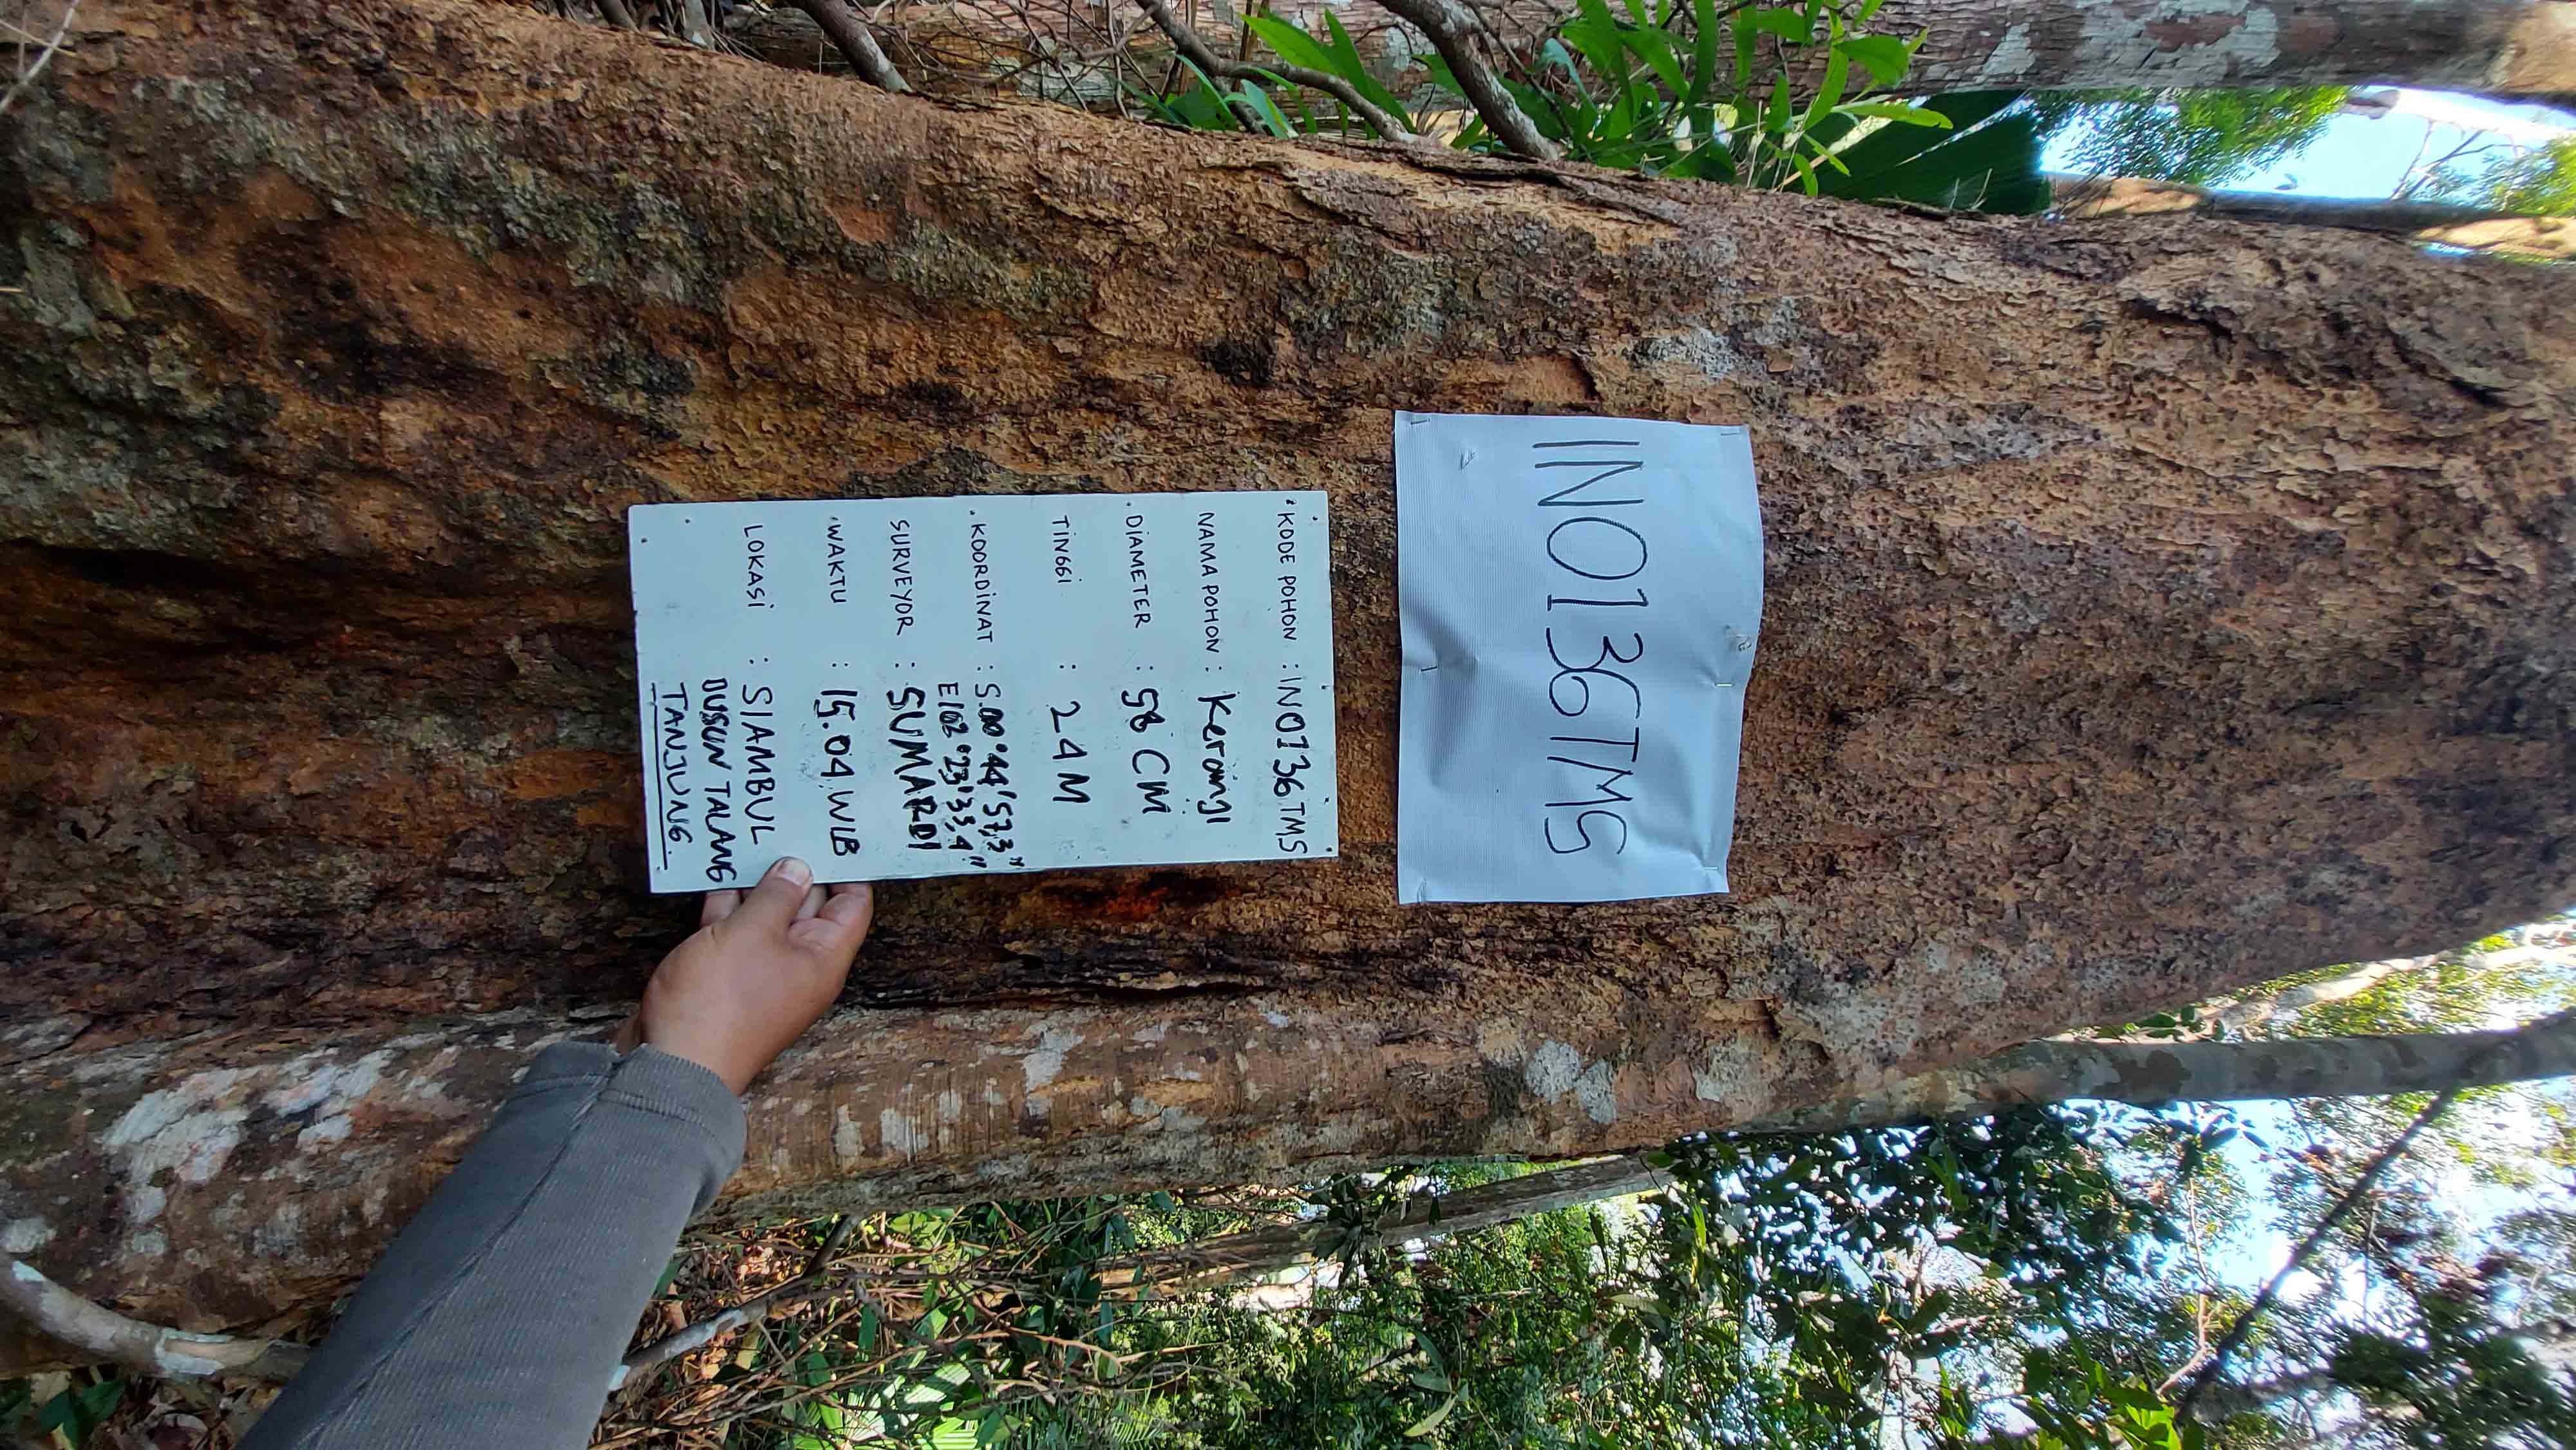 INO136TMS
KODE POHON : INO136 TMS
NAMA POHON : Keranji
DIAMETER : 58 CM
TINGGI : 24 M
KOORDINAT : S.00°44'57,3"
E102°23'33,4"
SURVEYOR : SUMARDI
WAKTU : 15.04 WIB
LOKASI : SIAMBUL
DUSUN TALANG
TANJUNG.